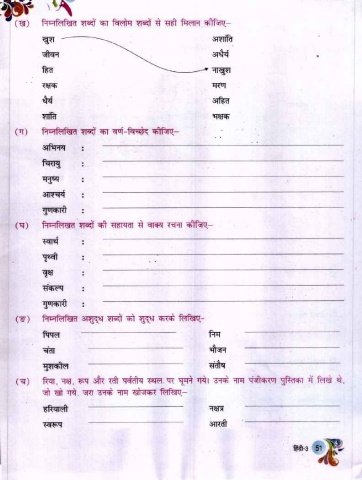 (ख) निम्नलिखित शब्दों का विलोम शब्दों से सही मिलान कीजिए–
खुश अशांति
जीवन अधैर्य
हित नाखुश
रक्षक मरण
धैर्य अहित
शांति भक्षक
(ग) निम्नलिखित शब्दों का वर्ण-विच्छेद कीजिए–
अभिनय :
चिरायु :
मनुष्य :
आश्चर्य :
गुणकारी :
(घ) निम्नलिखित शब्दों की सहायता से वाक्य रचना कीजिए–
स्वार्थ :
पृथ्वी :
वृक्ष :
संकल्प :
गुणकारी :
(ङ) निम्नलिखित अशुद्ध शब्दों को शुद्ध करके लिखिए–
पिपल निम
चंता भौजन
मुशकील संतौष
(च) रिया, नक्ष, रूप और रती पर्वतीय स्थल पर घूमने गये। उनके नाम पंजीकरण पुस्तिका में लिखे थे,
जो खो गये, जरा उनके नाम खोजकर लिखिए–
हरियाली नक्षत्र
स्वरूप आरती
हिंदी-3 51